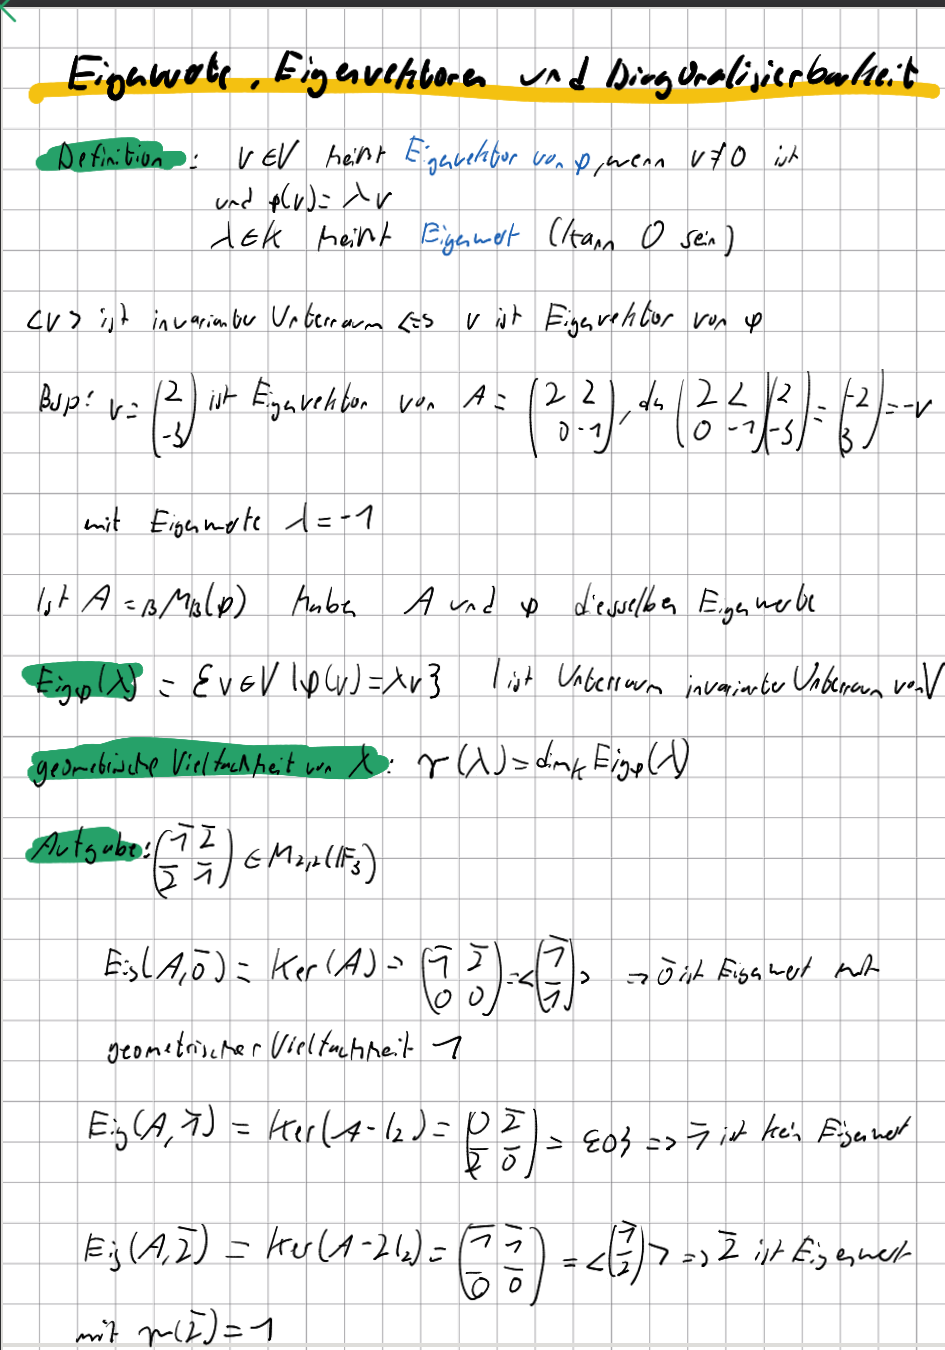 Eigenwerte, Eigenvektoren und Diagonalisierbarkeit
Definition: v ∈ V heißt Eigenvektor von φ, wenn v ≠ 0 ist
und φ(v) = λv
λ ∈ K heißt Eigenwert (kann 0 sein)
<v> ist invarianter Unterraum <=> v ist Eigenvektor von φ
Bsp: v = (2 / -3) ist Eigenvektor von A = (2 2 / 0 -1), da (2 2 / 0 -1)(2 / -3) = (-2 / 3) = -v
mit Eigenwerte λ = -1
Ist A = _B M_B(φ) haben A und φ diesselben Eigenwerte
Eig_φ(λ) = {v ∈ V | φ(v) = λv} | ist Unterraum invarianter Unterraum von V
geometrische Vielfachheit von λ: γ(λ) = dim_K Eig_φ(λ)
Aufgabe: (1̄ 2̄ / 2̄ 1̄) ∈ M_2,2(𝔽_3)
Eig(A, 0̄) = Ker(A) = (1̄ 2̄ / 0 0) = <(1̄ / 1̄)> => 0̄ ist Eigenwert mit
geometrischer Vielfachheit 1
Eig(A, 1̄) = Ker(A - I_2) = (0 2̄ / 2̄ 0̄) = {0} => 1̄ ist kein Eigenwert
Eig(A, 2̄) = Ker(A - 2I_2) = (1̄ 1̄ / 0̄ 0̄) = <(1̄ / 2̄)> => 2̄ ist Eigenwert
mit γ(2̄) = 1